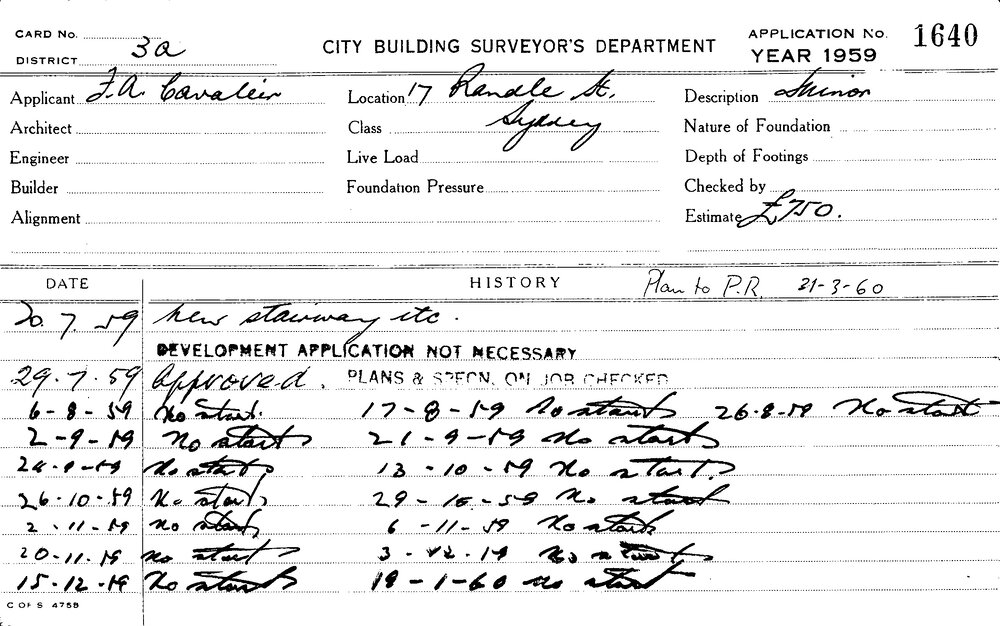 CARD No.
DISTRICT 3a
CITY BUILDING SURVEYOR'S DEPARTMENT
APPLICATION No. 1640
YEAR 1959
Applicant F.A. Cavalier Location 17 Randle St. Description Minor
Architect Class Sydney Nature of Foundation
Engineer Live Load Depth of Footings
Builder Foundation Pressure Checked by
Alignment Estimate £750.
DATE HISTORY Plan to P.R. 21-3-60
20.7.59 New stairway etc.
DEVELOPMENT APPLICATION NOT NECESSARY
29.7.59 Approved. PLANS & SPECN. ON JOB CHECKED
6-8-59 No start. 17-8-59 No start 26.8.59 No start
2-9-59 No start 21-9-59 No start
24-9-59 No start 13-10-59 No start
26.10.59 No start 29-10-59 No start
2-11-59 No start 6-11-59 No start
20-11.59 No start 3-12.59 No start
15.12.59 No start 19-1-60 No start
C OF S 4758